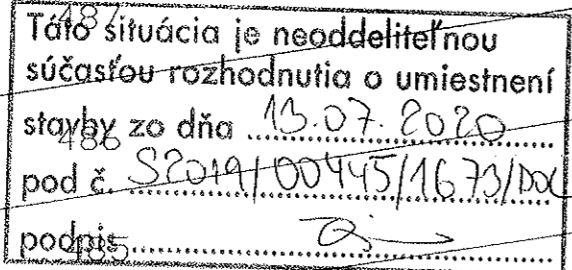 Táto situácia je neoddeliteľnou
súčasťou rozhodnutia o umiestnení
stavby zo dňa 13.07.2020
pod č. S2019/00445/1673/DOL
podpis
487
486
485